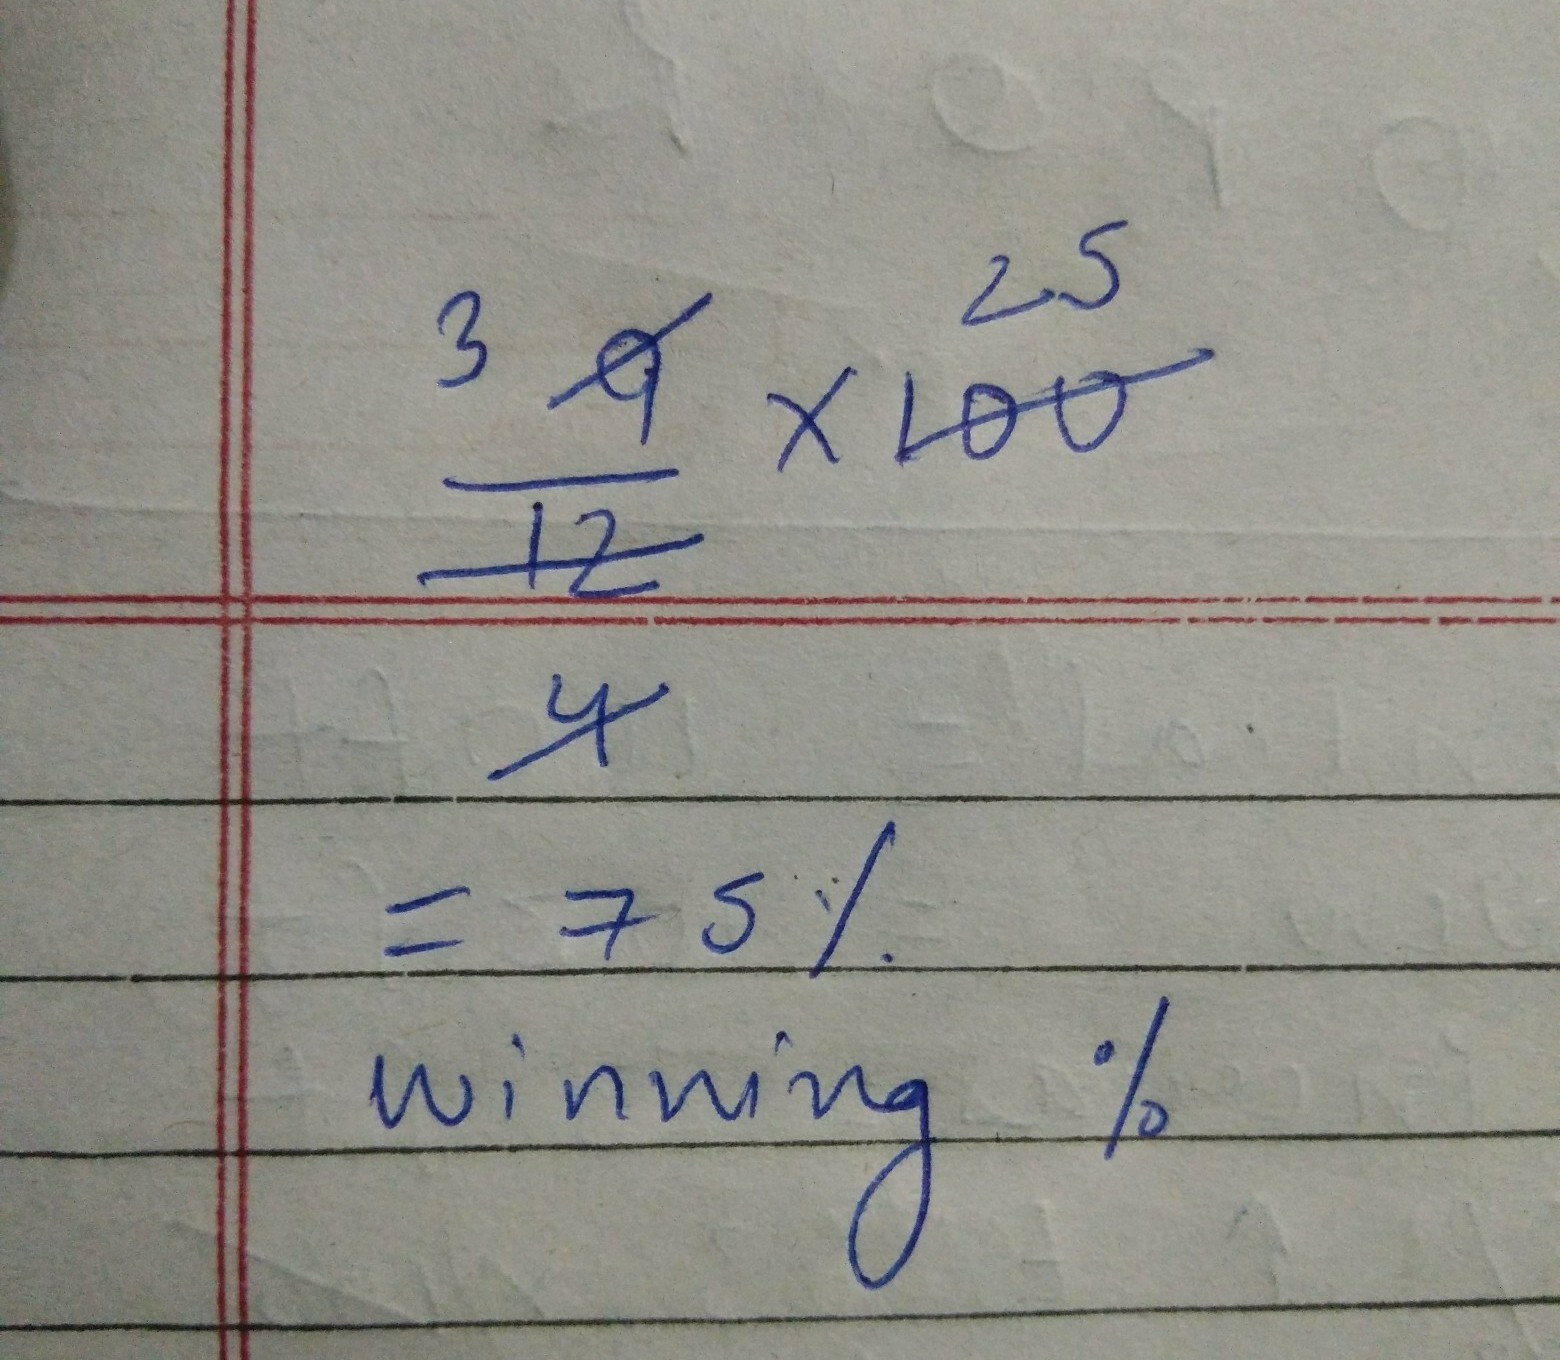 25
3 9 × 100
12
4
= 75%
winning %